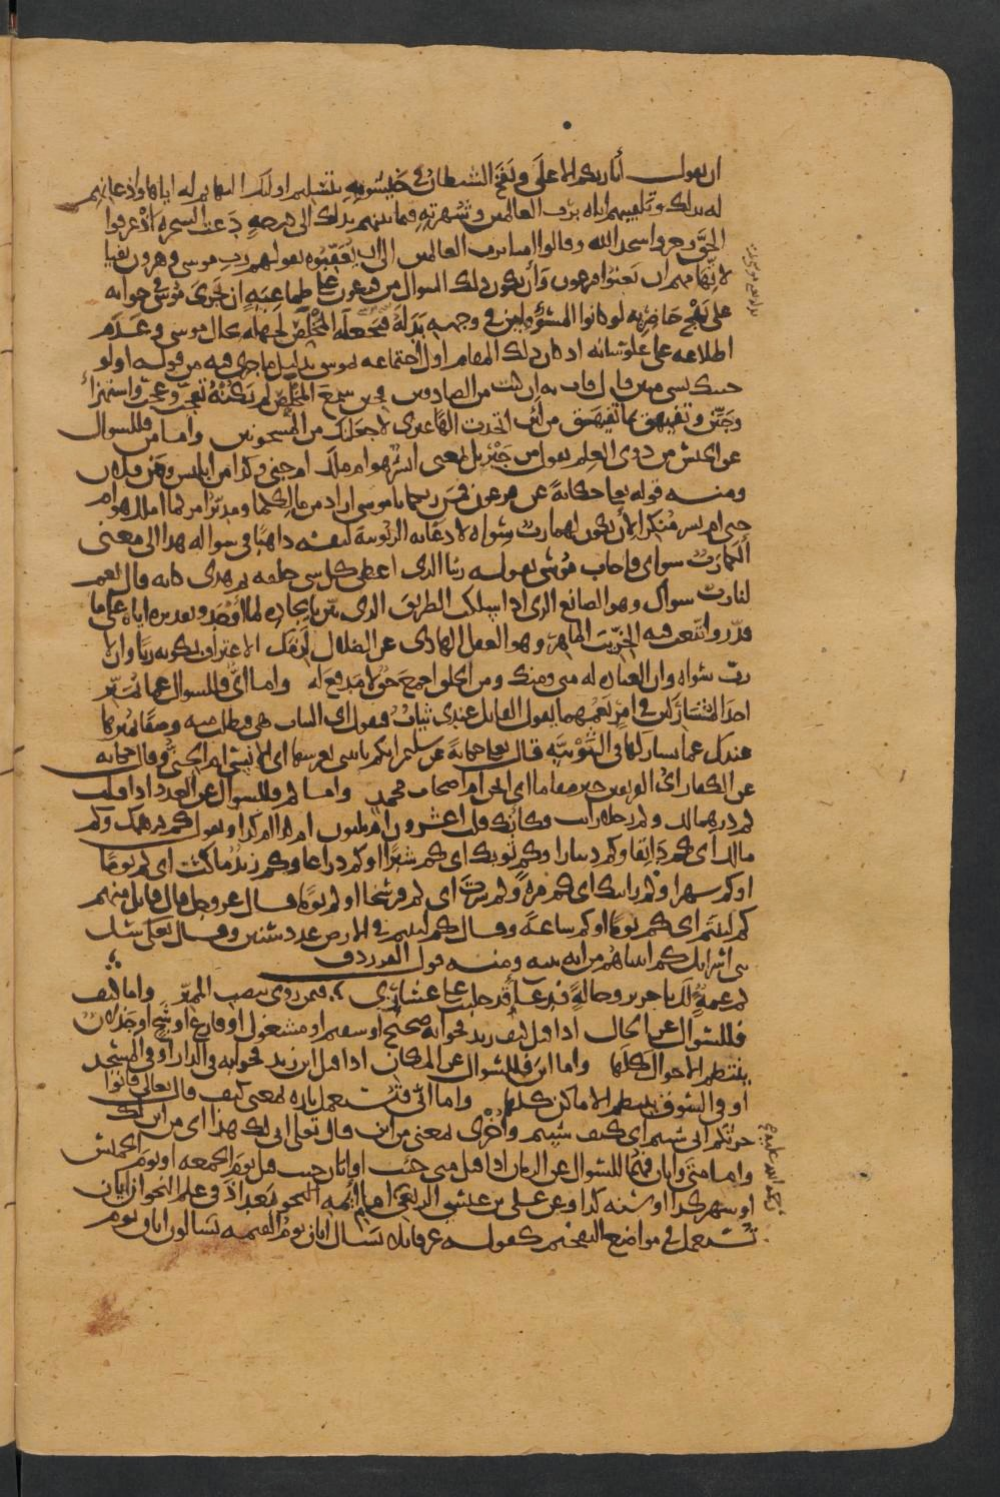 ان يقول أنا ربكم الاعلى ونفخ الشيطان في خيشومه بتسليم اولئك البهائم له اياها واذعانهم
له بذلك وتلقيبهم اياه برب العالمين وشهرته فيما بينهم بذلك الى درجة دعت السحرة اذ عرفوا
الحق وخروا سجدا لله وقالوا آمنا برب العالمين الى ان يعقبوه بقولهم رب موسى وهرون نفيا
لاتهامهم ان يعنوا فرعون وأن يكون ذلك السؤال من فرعون على طماعية ان يجري موسى في جوابه
على نهج حاضريه لو كانوا المسؤولين في وجهه بدله فجعله المخلص لجهله بحال موسى وعدم
اطلاعه على علو شأنه اذ كان ذلك المقام اول اجتماعه بموسى بدليل ما جرى فيه من قوله اولو
جئتك بشيء مبين قال فأت به ان كنت من الصادقين فحين سمع المخلص لم يكنه تعجب وعجب واستهزأ
وجنن وتفيهق بما تفيهق من لئن اتخذت الها غيري لاجعلنك من المسجونين واما من فللسؤال
عن الجنس من ذوي العلم تقول من جبريل بمعنى ابشر هو ام ملك ام جني وكذا من ابليس ومن فلان
ومنه قوله تعالى حكاية عن فرعون فمن ربكما يا موسى اراد من مالككما ومدبر امركما املك هو ام
جني ام بشر منكرا لأن يكون لهما رب سواه لادعائه الربوبية لنفسه ذاهبا في سؤاله هذا الى معنى
ألكما رب سواي فاجاب موسى بقوله ربنا الذي اعطى كل شيء خلقه ثم هدى كأنه قال نعم
لنا رب سواك وهو الصانع الذي اذا سلكت الطريق الذي بين بايجاده لما اوجد وتقديره اياه على ما
قدر واتبعت فيه الخريت الماهر وهو العقل الهادي عن الضلال لزمك الاعتراف بكونه ربا وان لا
رب سواه وان العبادة له مني ومنك ومن الخلق اجمع حق لا مدفع له واما اي فللسؤال عما يميز
احد المتشاركين في امر يعمهما يقول القائل عندي ثياب فتقول اي الثياب هي فتطلب منه وصفا يميزها
عندك عما يشاركها في الثوبية قال تعالى حكاية عن سليمن ايكم يأتيني بعرشها اي الانسي ام الجني وقال حكاية
عن الكفار اي الفريقين خير مقاما اي انحن ام اصحاب محمد واما كم فللسؤال عن العدد اذا قلت
كم درهما لك وكم رجلا رأيت فكأنك قلت اعشرون ام ثلثون ام كذا ام كذا وتقول كم درهمك وكم
مالك اي كم دانقا وكم دينارا وكم ثوبك اي كم شبرا او كم ذراعا وكم زيد ماكث اي كم يوما
او كم شهرا وكم رأيتك اي كم مرة وكم سرت اي كم فرسخا او كم يوما قال عز وجل قال قائل منهم
كم لبثتم اي كم يوما او كم ساعة وقال كم لبثتم في الارض عدد سنين وقال تعالى سل
بني اسرايل كم اتيناهم من اية بينة ومنه قول الفرزدق
كم عمة لك يا جرير وخالة فدعاء قد حلبت علي عشاري فيمن روى بنصب المميز واما كيف
فللسؤال عن الحال اذا قيل كيف زيد فجوابه صحيح او سقيم او مشغول او فارغ او شج او جذلان
ينتظم الاحوال كلها واما اين فللسؤال عن المكان اذا قيل اين زيد فجوابه في الدار او في المسجد
او في السوق ينتظم الاماكن كلها واما انى فتستعمل تارة بمعنى كيف قال تعالى فاتوا
حرثكم انى شئتم اي كيف شئتم وأخرى بمعنى من اين قال تعالى انى لك هذا اي من اين لك
واما متى وايان فهما للسؤال عن الزمان اذا قيل متى جئت او ايان جئت قيل يوم الجمعة او يوم الخميس
او شهر كذا او سنة كذا وعن علي بن عيسى الربعي امام ايمة النحو ببغداد في علم النحو ان ايان
تستعمل في مواضع التفخيم كقوله عز قائلا يسأل ايان يوم القيمة يسألون ايان يوم